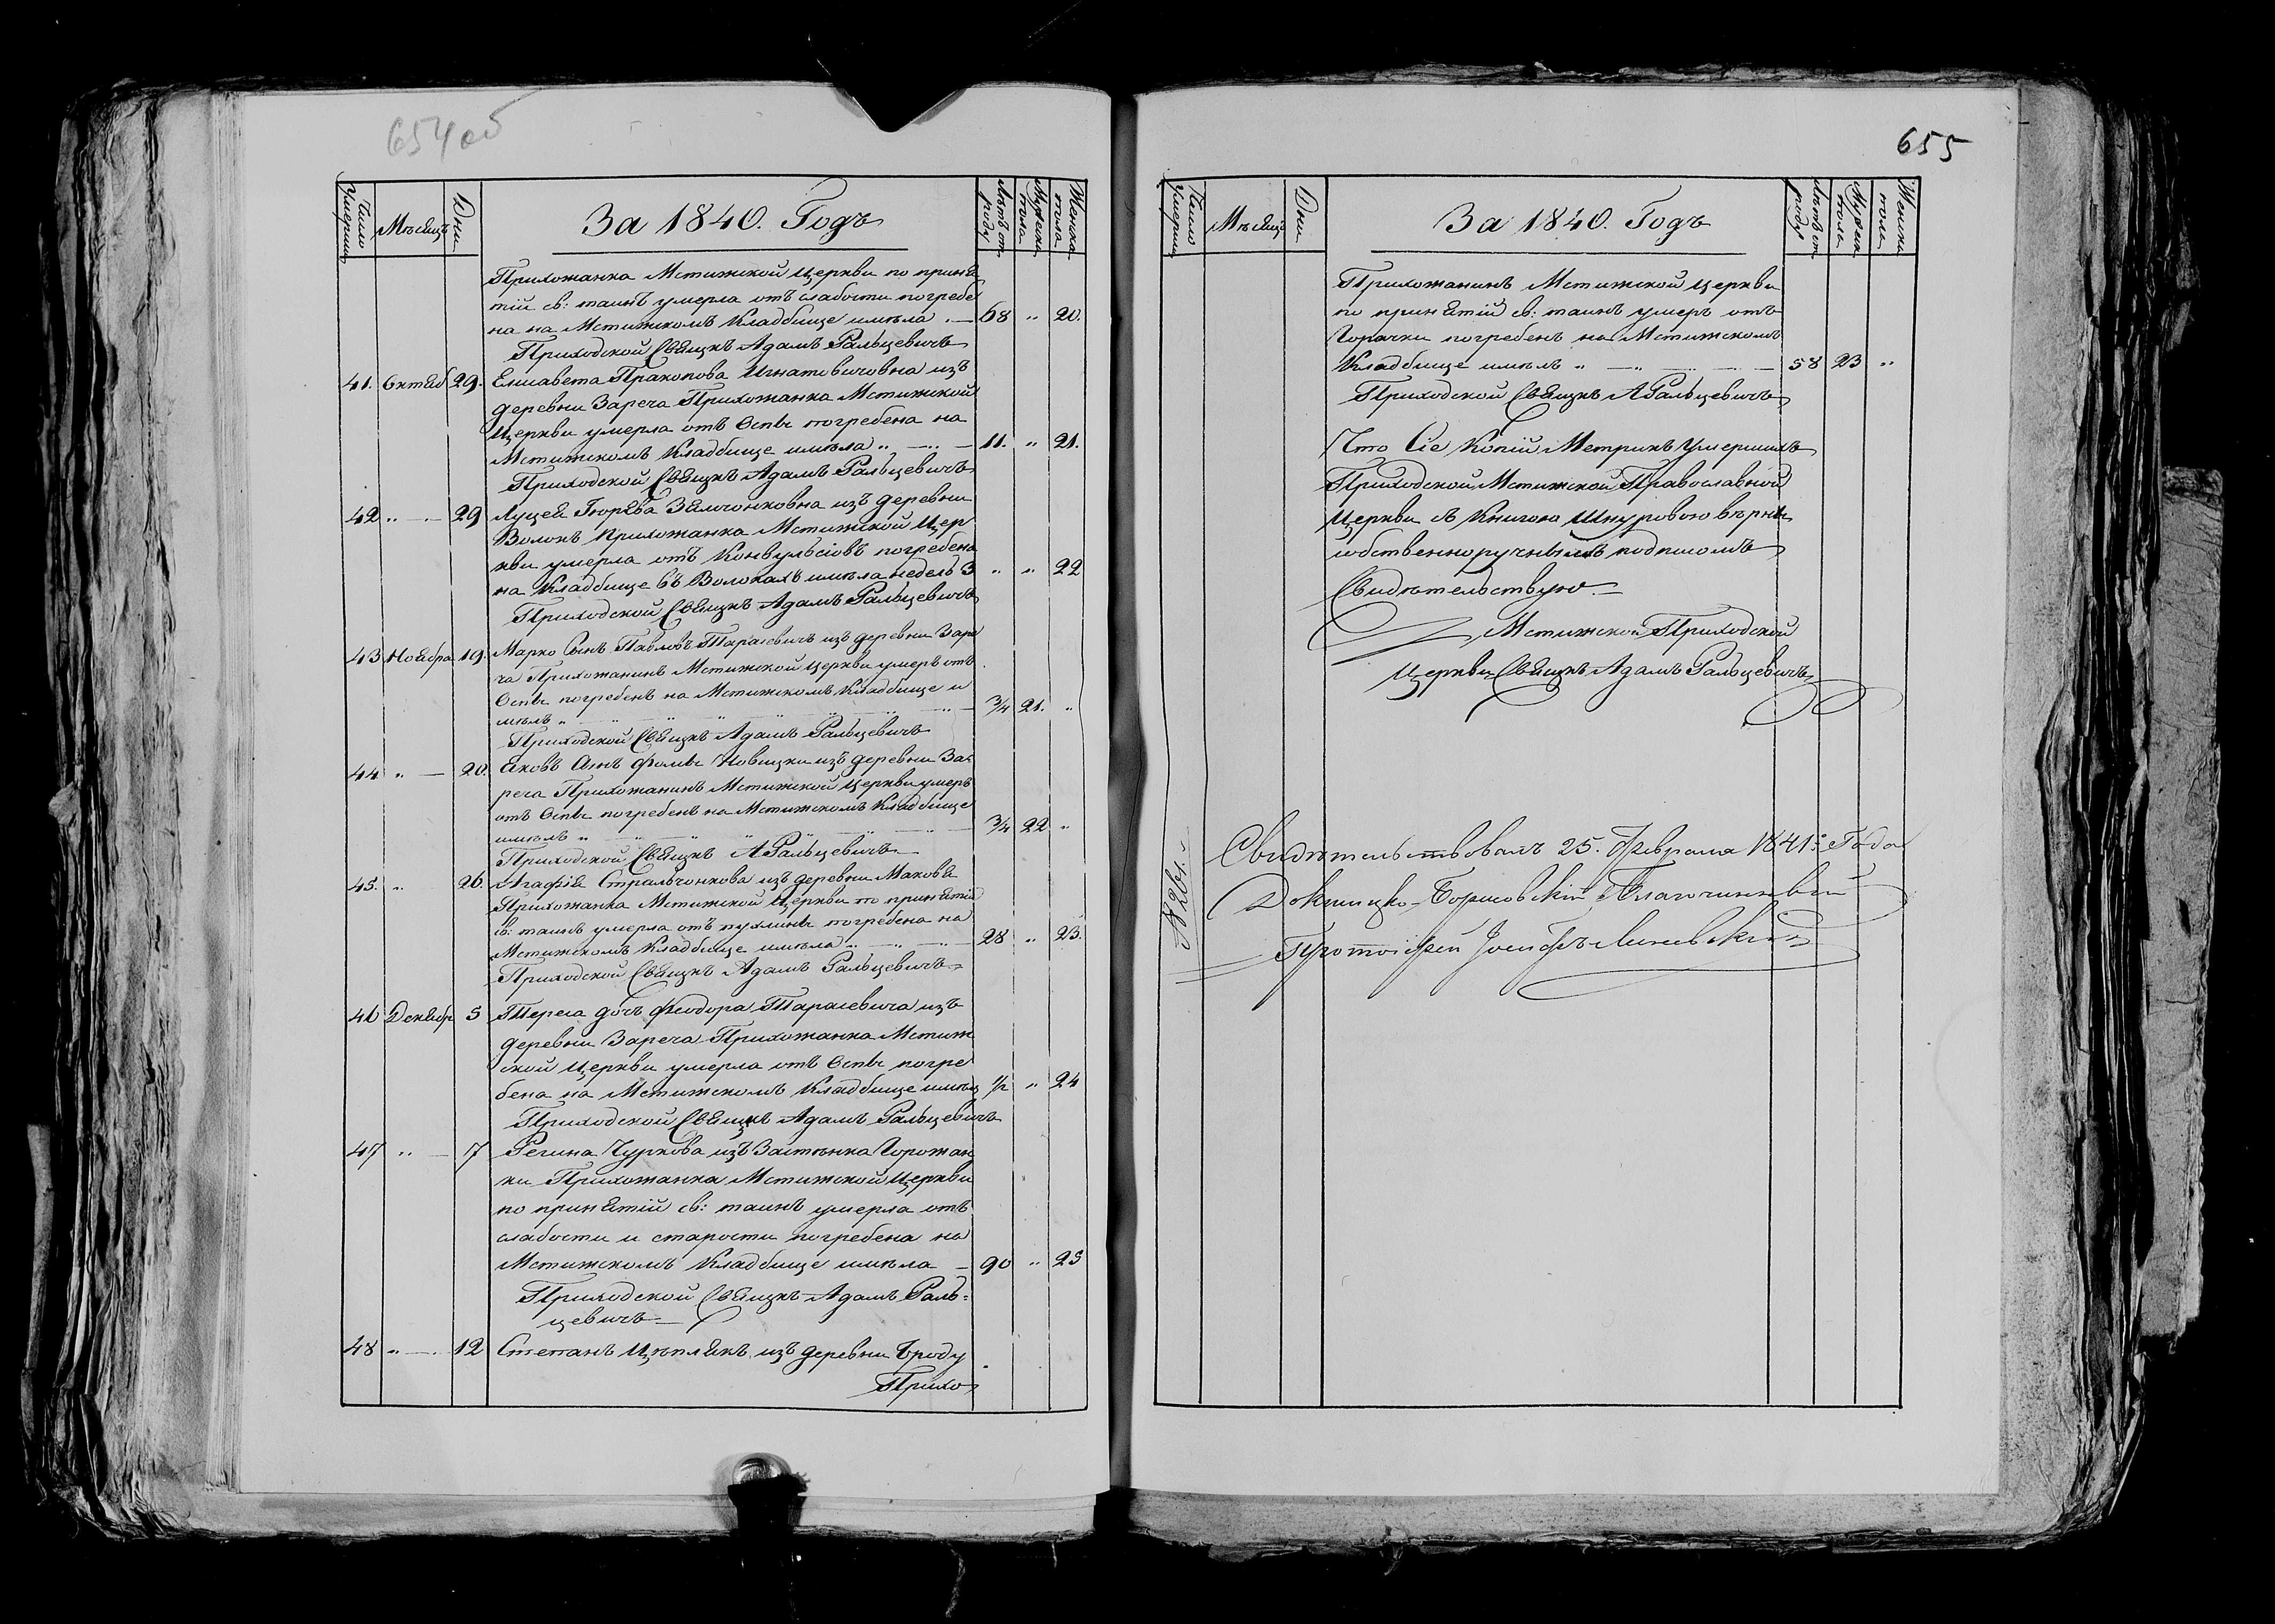 654 об
Число Умерши
Мѣсяцъ
Дни
За 1840. Годъ
Лѣтъ от роду
Мужеска пола
Женска пола
Прихожанка Мстижской Церкви по приня
тіи св: таинъ умерла отъ слабости погребе
на на Мстижскомъ Кладбище имѣла . — 68 „ 20.
Приходской Свящнъ Адамъ Ральцевичъ
41. Октяб 29. Елисавета Пракопова Игнатовичовна изъ
деревни Зареча Прихожанка Мстижской
Церкви умерла отъ Оспы погребена на
Мстижскомъ Кладбище имѣла „ — „ — 11. „ 21.
Приходской Свящнъ Адамъ Ральцевичъ
42 „ — . 29 Луцея Гюрева Зялчонковна изъ деревни
Волокъ Прихожанка Мстижской Цер
кви умерла отъ Конвульсіовъ погребена
на Кладбище въ Волокахъ имѣла недель 3 „ „ 22
Приходской Свящнъ Адамъ Ральцевичъ
43 Ноября 19. Марко Сынъ Павловъ Тарасевичъ изъ деревни Заре
ча Прихожанинъ Мстижской Церкви умеръ отъ
Оспы погребенъ на Мстижскомъ Кладбище и
мѣлъ „ 3/4 21. „
Приходской Свящнъ Адамъ Ральцевичъ
44 „ — 20. Яковъ Сынъ Фомы Новицки изъ деревни За-
реча Прихожанинъ Мстижской Церкви умеръ
отъ Оспы погребенъ на Мстижскомъ Кладбище
имѣлъ „ 3/4 22 „
Приходской Свящнъ АРальцевичъ
45. „ 26. Агафія Стральчонкова изъ деревни Маковья
Прихожанка Мстижской Церкви по принятіи
св: таинъ умерла отъ пухлины погребена на
Мстижскомъ Кладбище имѣла „ — „ — 28 „ 23.
Приходской Свящнъ Адамъ Ральцевичъ
46 Декабр 5 Тереса дочъ Феодора Тарасевича изъ
деревни Зареча Прихожанка Мстиж
ской Церкви умерла отъ Оспы погре
бена на Мстижскомъ Кладбище имѣла 1/2 „ 24
Приходской Свящнъ Адамъ Ральцевичъ
47 „ — 7 Регина Чуркова изъ Застѣнка Горожан
ки Прихожанка Мстижской Церкви
по принятіи св: таинъ умерла отъ
слабости и старости погребена на
Мстижскомъ Кладбище имѣла — 90 „ 25
Приходской Свящнъ Адамъ Раль=
цевичъ
48 „ — . 12 Степанъ Цѣплякъ изъ деревни Броду
Прихо
655
Число Умерши
Мѣсяцъ
Дни
За 1840. Годъ
Лѣтъ от роду
Мужеск пола
Женск пола
Прихожанинъ Мстижской Церкви
по принятіи св: таинъ умеръ отъ
Горачки погребенъ на Мстижскомъ
Кладбище имѣлъ „ — „ — 58 23 „
Приходской Свящнъ АРальцевичъ
Что Сіе Копіи Метрикъ Умершихъ
Приходской Мстижской Православной
Церкви съ Книгою Шнуровою вѣрны
собственноручнымъ подписомъ
Свидѣтельствую.
Мстижской Приходской
Церкви Свящнъ Адамъ Ральцевичъ
№ 261.
Свидѣтельствовалъ 25. Февраля 1841: Года
Докшицко-Борисовскій Благочинный
Протоіерей Іосифъ Линевскій